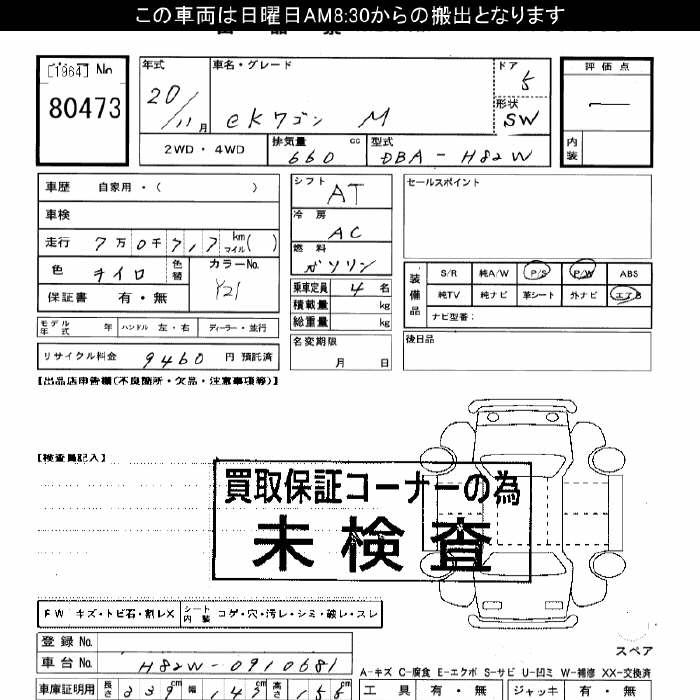 この車両は日曜日AM8:30からの搬出となります
[1964] No
80473
年式 車名・グレード ドア 5
20/11月 eKワゴン M
形状 SW
2WD・4WD 排気量 660 cc 型式 DBA-H82W
評価点
—
内装
車歴 自家用・( )
車検
走行 7万0千7,17 km マイル( )
色 キイロ 色替 カラーNo. Y21
保証書 有・無
モデル年式 年 ハンドル 左・右 ディーラー・並行
リサイクル料金 9460 円 預託済
シフト AT
冷房 AC
燃料 ガソリン
乗車定員 4 名
積載量 kg
総重量 kg
名変期限 月 日
セールスポイント
装備品 S/R 純A/W P/S P/W ABS
純TV 純ナビ 革シート 外ナビ エアB
ナビ型番:
後日品
【出品店申告欄(不良箇所・欠品・注意事項等)】
【検査員記入】
買取保証コーナーの為
未検査
FW キズ・トビ石・割レX シート内装 コゲ・穴・汚レ・シミ・破レ・スレ
登録No.
車台No. H82W-0910681
スペア
A-キズ C-腐食 E-エクボ S-サビ U-凹ミ W-補修 XX-交換済
車庫証明用 長さ 339cm 幅 147cm 高さ 155cm
工具 有・無 ジャッキ 有・無